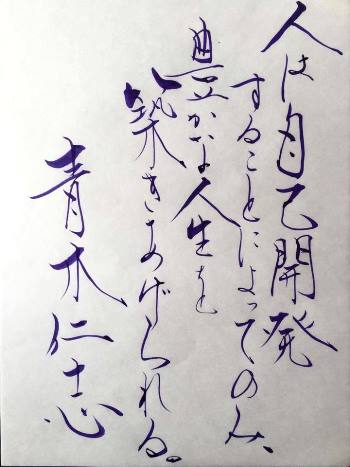 人は自己開発
することによってのみ、
豊かな人生を
築きあげられる。
青木仁志